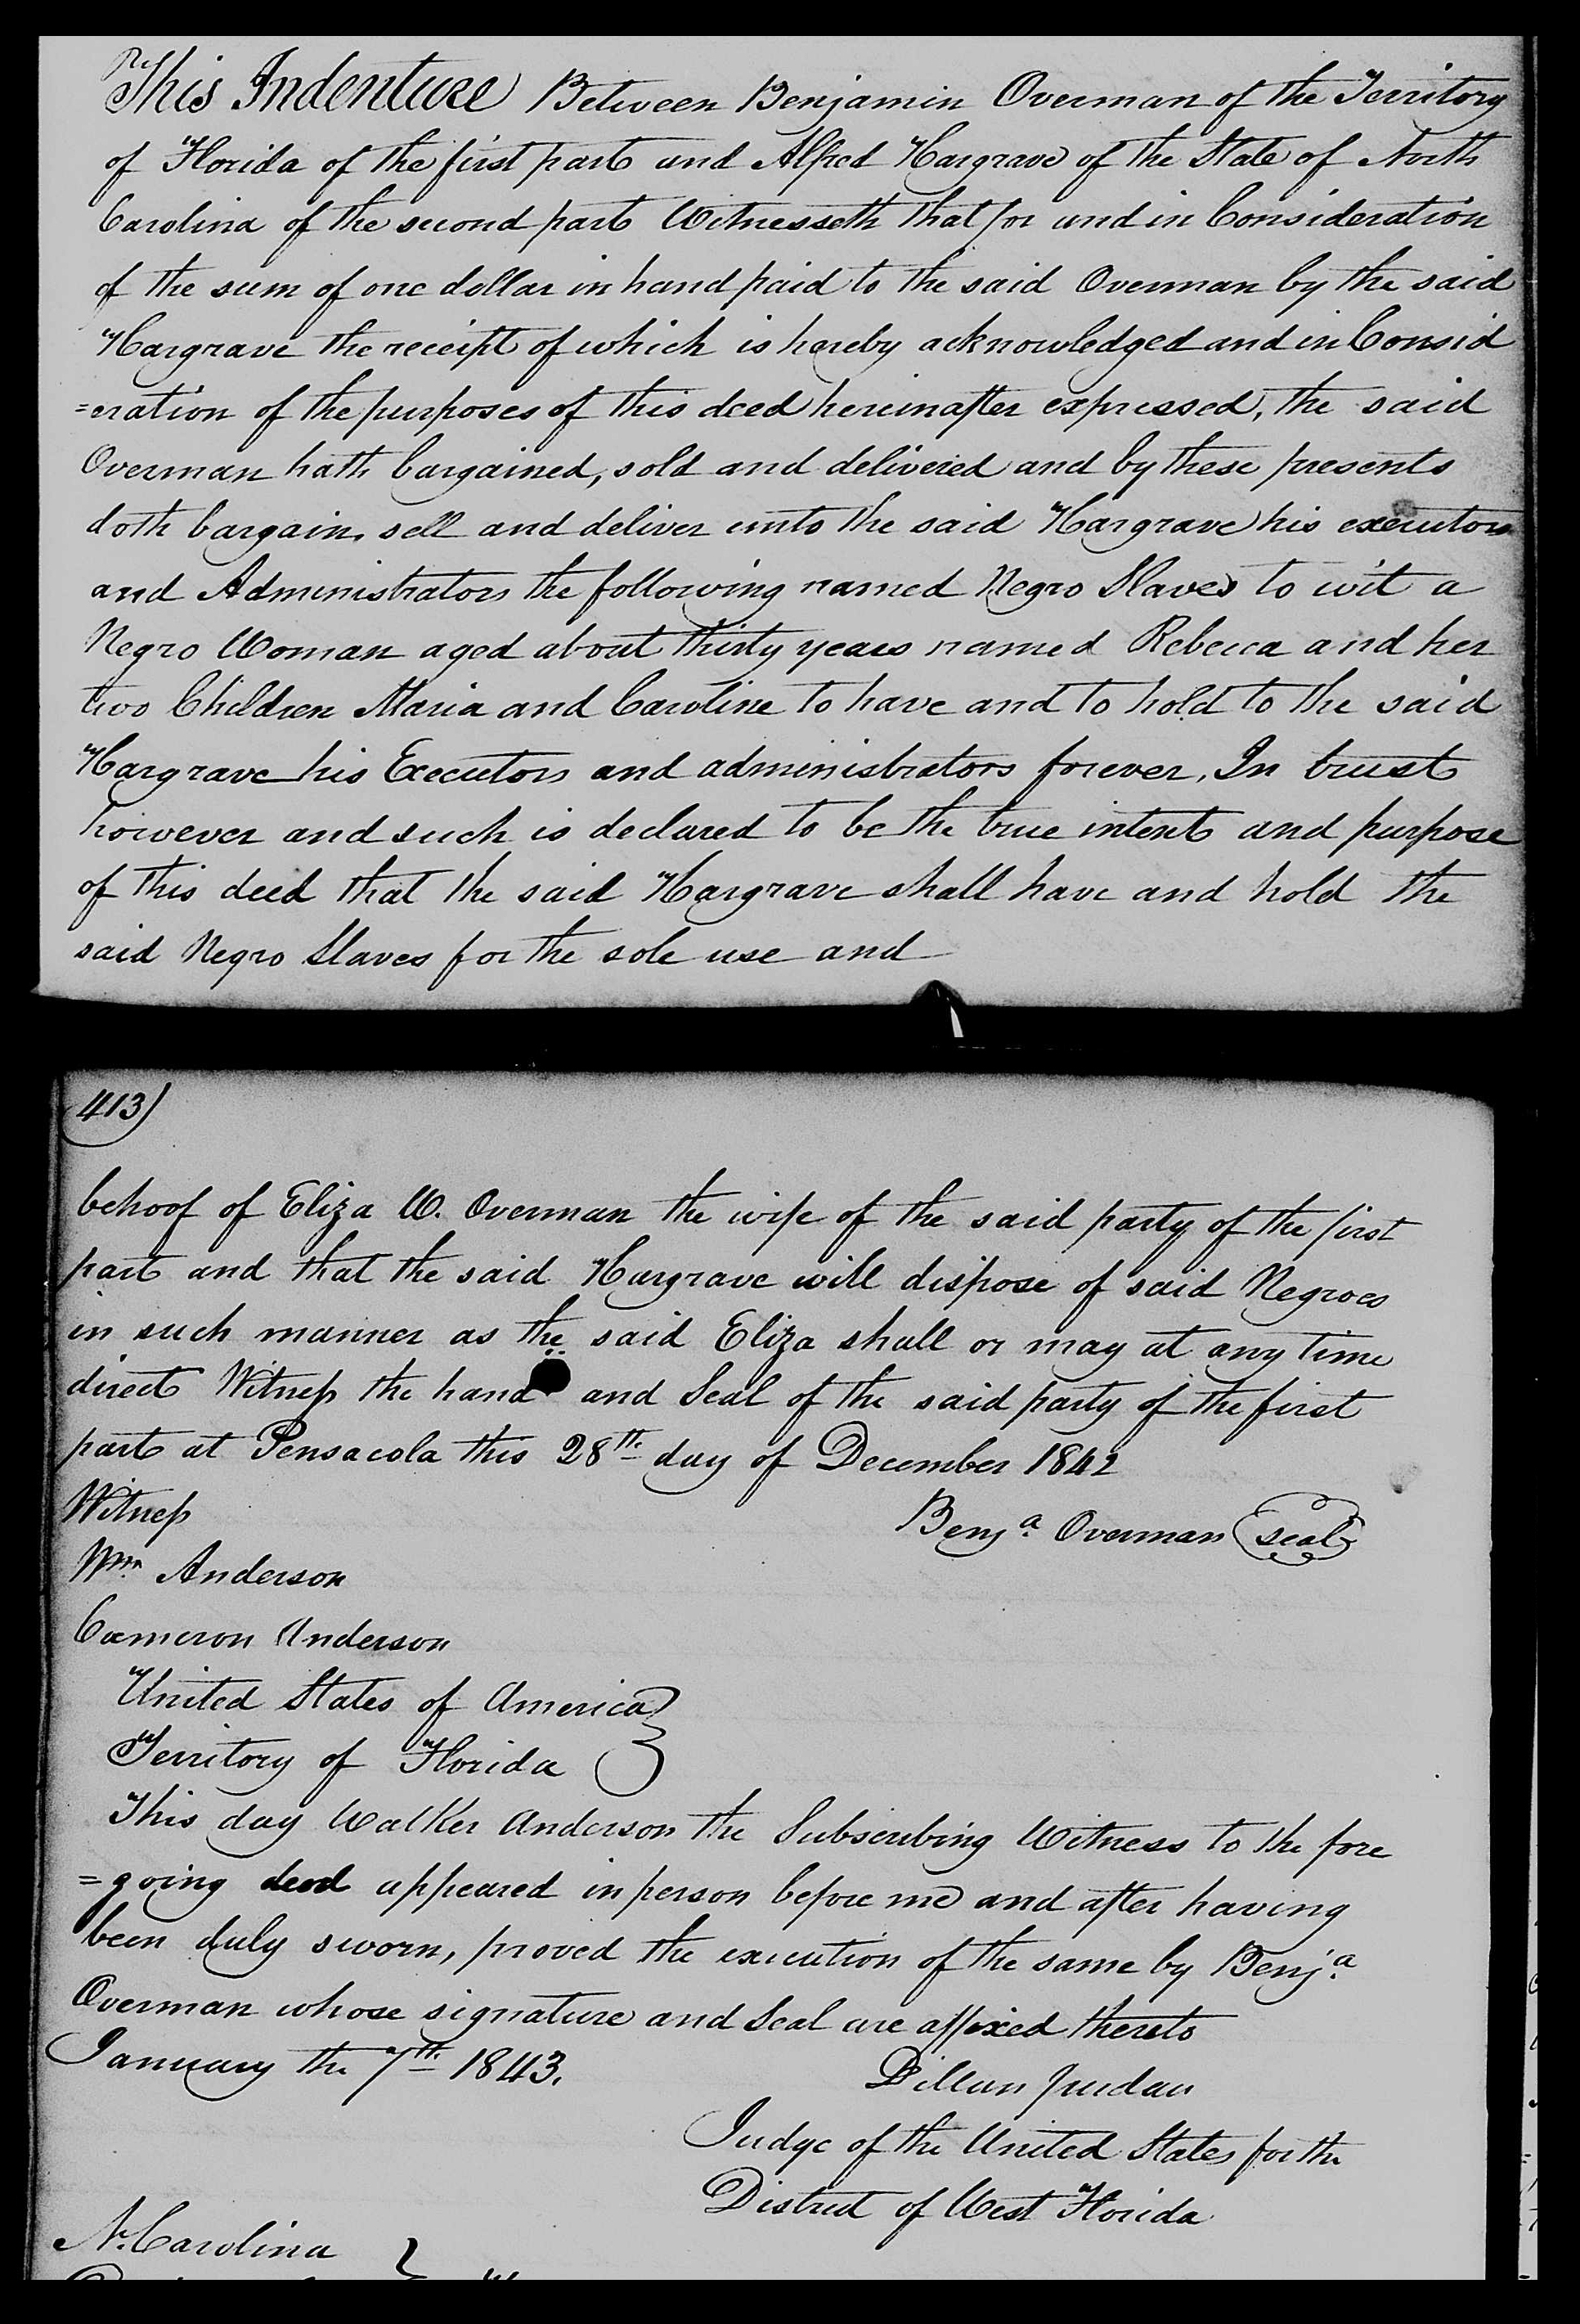 This Indenture Between Benjamin Overman of the Territory
of Florida of the first part and Alfred Hargrave of the State of North
Carolina of the second part Witnesseth that for and in Consideration
of the sum of one dollar in hand paid to the said Overman by the said
Hargrave the receipt of which is hereby acknowledged and in Consid
=eration of the purposes of this deed hereinafter expressed, the said
Overman hath bargained, sold and delivered and by these presents
doth bargain, sell and deliver unto the said Hargrave his executors
and Administrators the following named Negro Slaves to wit a
Negro Woman aged about thirty years named Rebecca and her
two Children Maria and Caroline to have and to hold to the said
Hargrave his Executors and administrators forever, In trust
however and such is declared to be the true intent and purpose
of this deed that the said Hargrave shall have and hold the
said Negro Slaves for the sole use and
413)
behoof of Eliza W. Overman the wife of the said party of the first
part and that the said Hargrave will dispose of said Negroes
in such manner as the said Eliza shall or may at any time
direct Witness the hand and Seal of the said party of the first
part at Pensacola this 28th day of December 1842
Witness
Benja. Overman (seal)
Wm. Anderson
Cameron Anderson
United States of America }
Territory of Florida }
This day Walker Anderson the Subscribing Witness to the fore
=going deed appeared in person before me and after having
been duly sworn, proved the execution of the same by Benja.
Overman whose signature and Seal are affixed thereto
January the 7th 1843.
Dillon Jordan
Judge of the United States for the
District of West Florida
N. Carolina }